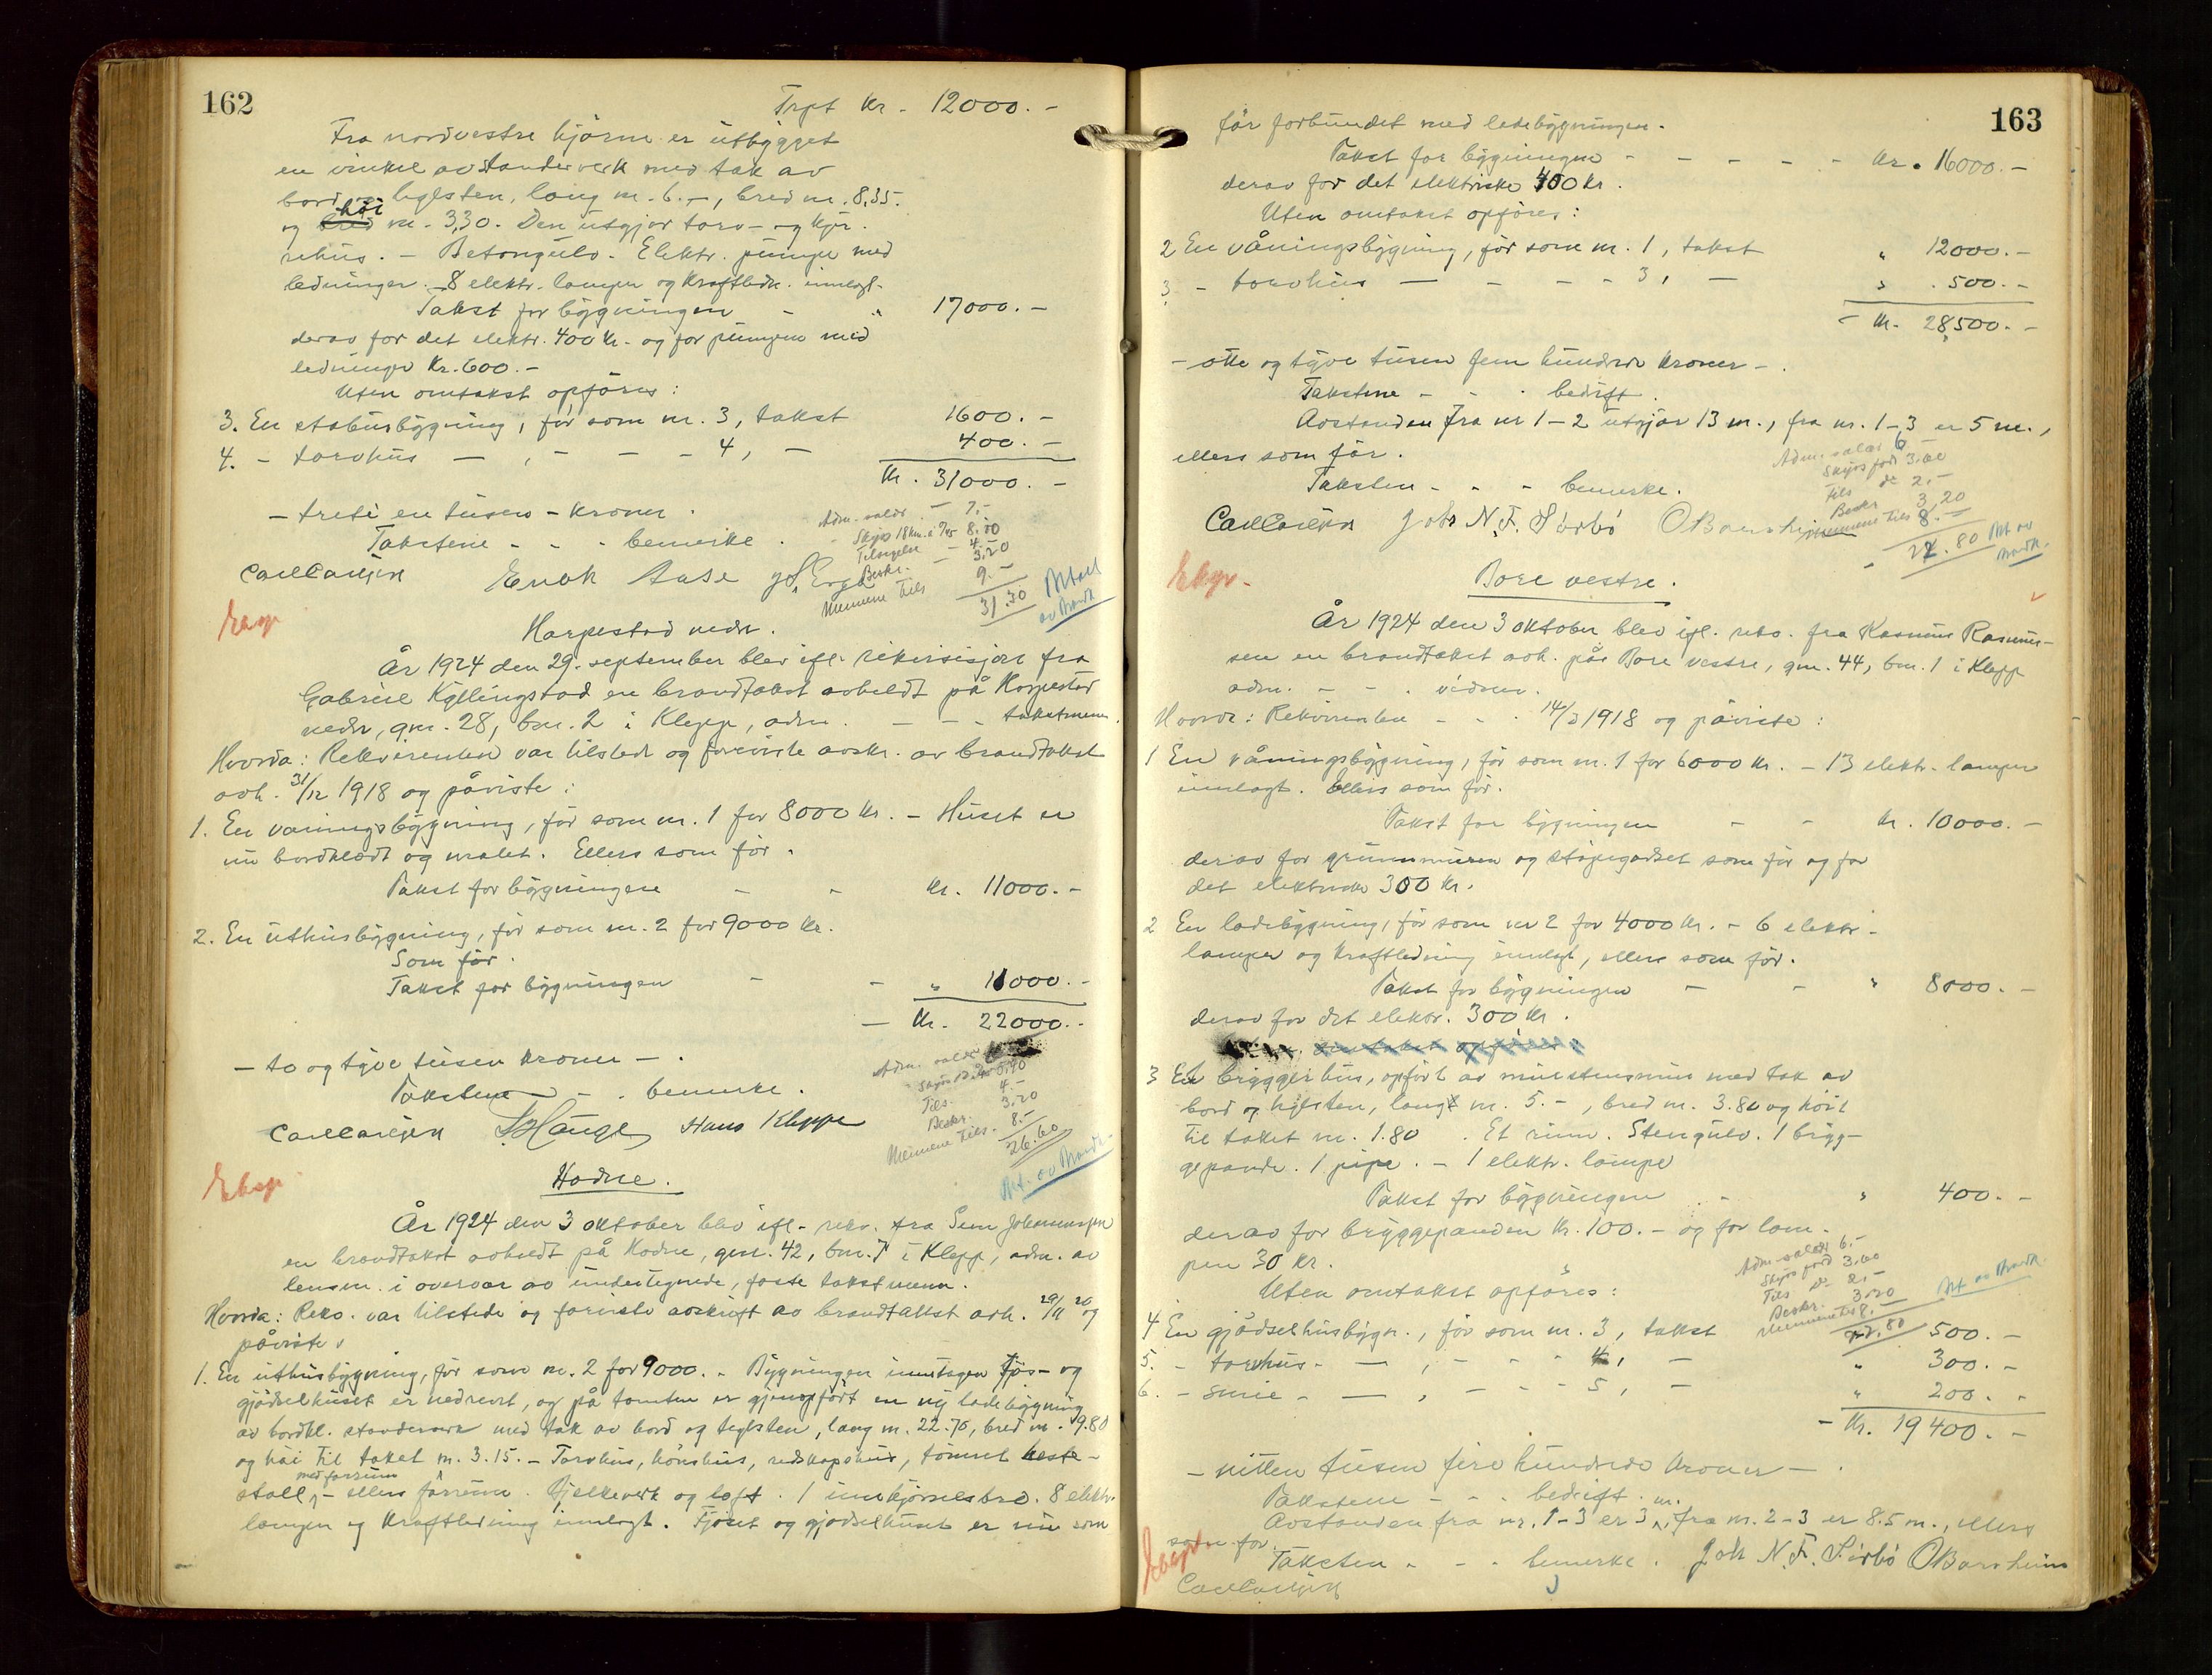 162
Trpt kr. 12000.-
Fra nordvestre hjørne er utbygget
en vinkel av standerverk med tak av
bord og teglsten, lang m. 6.-, bred m. 8,35.
og høi m. 3,30. Den utgjør torv- og kjør-
rehus. - Betongulv. Elektr. pumpe med
ledninger. - 8 elektr. lamper og kraftledn. innlagt.
Takst for bygningen - " 17000.-
derav for det elektr. 400 kr. og for pumpen med
ledninger kr. 600.-
Uten omtakst opføres:
3. En stabursbygning, før som nr. 3, takst 1600.-
4. - torvhus - , - - - 4, - 400.-
Kr. 31000.-
- treti en tusen - kroner.
Takstene - - - bemerke.
Adm. valds - 7.-
Skyss 18 km.
Tilsyn - 4.-
Beskr. - 3.20
Mennene tils 9.-
31.30
Betalt av Brandk.
Carl Carlsen Enok Aase
Eksp
Harpestad nedr.
År 1924 den 29. september blev ifl. rekvisisjon fra
Gabriel Kyllingstad en brandtakst avholdt på Harpestad
nedr, gnr. 28, bnr. 2 i Klepp, adm. - - - takstmenn.
Hvorda: Rekvirenten var tilstede og foreviste avskr. av brandtakst
avh. 31/12 1918 og påviste:
1. En våningsbygning, før som nr. 1 for 8000 kr. - Huset er
nu bordklædt og malet. Ellers som før.
Takst for bygningen - - kr. 11000.-
2. En uthusbygning, før som nr. 2 for 9000 kr.
Som før.
Takst for bygningen - - " 11000.-
- Kr. 22000.-
- to og tyve tusen kroner - .
Takstene - - bemerke.
Adm. valds
Tils. 4.-
Beskr. 3.20
Mennene tils. 8.-
26.60
Bet. av Brandk.
Carl Carlsen Hauge Hans Kleppe
Eksp
Hodne.
År 1924 den 3 oktober blev ifl. rekv. fra Sem Johannessen
en brandtakst avholdt på Hodne, gnr. 42, bnr. 7 i Klepp, adm. av
lensm. i overvær av undertegnede, faste takstmenn.
Hvorda: Rekv. var tilstede og foreviste avskrift av brandtakst avh. 29/11 20 og
påviste:
1. En uthusbygning, før som nr. 2 for 9000. - Bygningen unntagen fjøs- og
gjødselhuset er nedrevet, og på tomten er gjenopført en ny ladebygning
av bordkl. standerverk med tak av bord og teglsten, lang m. 22.70, bred m. 9.80
og høi til taket m. 3.15. - Torvhus, hønshus, redskapshus, tømret heste-
stall, med forrum - ellers fårerum. Bjelkeverk og loft. 1 innkjørselsbro. 8 elektr.
lamper og kraftledning innlagt. Fjøset og gjødselhuset er nu som
163
før forbundet med ladebygningen.
Takst for bygningen - - - - - kr. 16000.-
derav for det elektriske 400 kr.
Uten omtakst opføres:
2 En våningsbygning, før som nr. 1, takst " 12000.-
3 - torvhus - - - - 3, - " 500.-
- Kr. 28,500.-
- otte og tyve tusen fem hundrede kroner -.
Takstene - - - bedrift.
Avstanden fra nr 1-2 utgjør 13 m., fra nr. 1-3 er 5 m.,
ellers som før.
Taksten - - - bemerke.
Adm. valds 6.-
Skyss ford 3.60
Tils do 2.-
Beskr. 3,20
Mennene tils 8.-
22.80 Bet av Brandk.
Carl Carlsen Joh N. F. Sirbø O Borsheim
Eksp.
Bore vestre.
År 1924 den 3 oktober blev ifl. rekv. fra Rasmus Rasmus-
sen en brandtakst avh. på Bore vestre, gnr. 44, bnr. 1 i Klepp
adm. - - - vidner.
Hvorda: Rekvirenten - - - 14/3 1918 og påviste:
1 En våningsbygning, før som nr. 1 for 6000 kr. - 13 elektr. lamper
innlagt. Ellers som før.
Takst for bygningen - - kr. 10000.-
derav for grunnmuren og støpegodset som før og for
det elektriske 300 kr.
2 En ladebygning, før som nr 2 for 4000 kr. - 6 elektr.
lamper og kraftledning innlagt, ellers som før.
Takst for bygningen - - " 8000.-
derav for det elektr. 300 kr.
3 Et bryggerhus, opført av murstensmur med tak av
bord og teglsten, langt m. 5.-, bred m. 3.80 og høit
til taket m. 1.80. Et rum. Stengulv. 1 bryg-
gepande. 1 pipe. - 1 elektr. lampe
Takst for bygningen - " 400.-
derav for bryggepanden kr. 100.- og for lam-
pen 30 kr.
Uten omtakst opføres:
Adm. valds 6.-
Skyss ford 3.60
Tils do 2.-
Beskr. 3.20
Mennene tils 8.-
22.80
Bet av Brandk.
4 En gjødselhusbygn., før som nr. 3, takst 500.-
5. - torvhus - - , - - - 4, - " 300.-
6. - smie - - , - - - 5, - " 200.-
- Kr. 19400.-
- nitten tusen fire hundrede kroner - .
Takstene - - - bedrift.
Avstanden fra nr. 1-3 er 3 m., fra nr. 2-3 er 8.5 m., ellers
som før.
Taksten - - - bemerke. Joh N. F. Sirbø O Borsheim
Eksp
Carl Carlsen